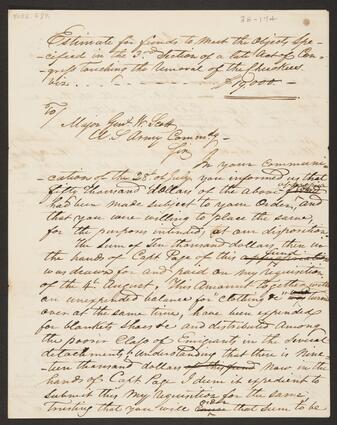 38-174
Estimate for funds to Meet the Objects Spe-
cified in the 3d Section of a late Act of Con-
gress touching the removal of the Cherokees
viz. $19,000.—
To/
Major Genl W. Scott
U S Army Commdg —
Sir
In your Communi-
cations of the 28th of July, you informed us that
fifty thousand dollars of the above
had been made subject to your Order, and
that you were willing to place the same,
for the purposes intended, at our disposition.
The sum of ten thousand dollars, then in
the hands of Capt Page of this fund
was drawn for and paid on my requisition
of the 4th August, This Amount together with
an unexpended balance for clothing &c turned
over at the same time, have been expended
for blankets shoes &c and distributed among
the poorer class of Emigrants in the several
detachments; Understanding that there is Nine-
teen thousand dollars Now, in the
hands of Capt Page I deem it expedient to
submit this My requisition for the same,
trusting that you will that sum to be